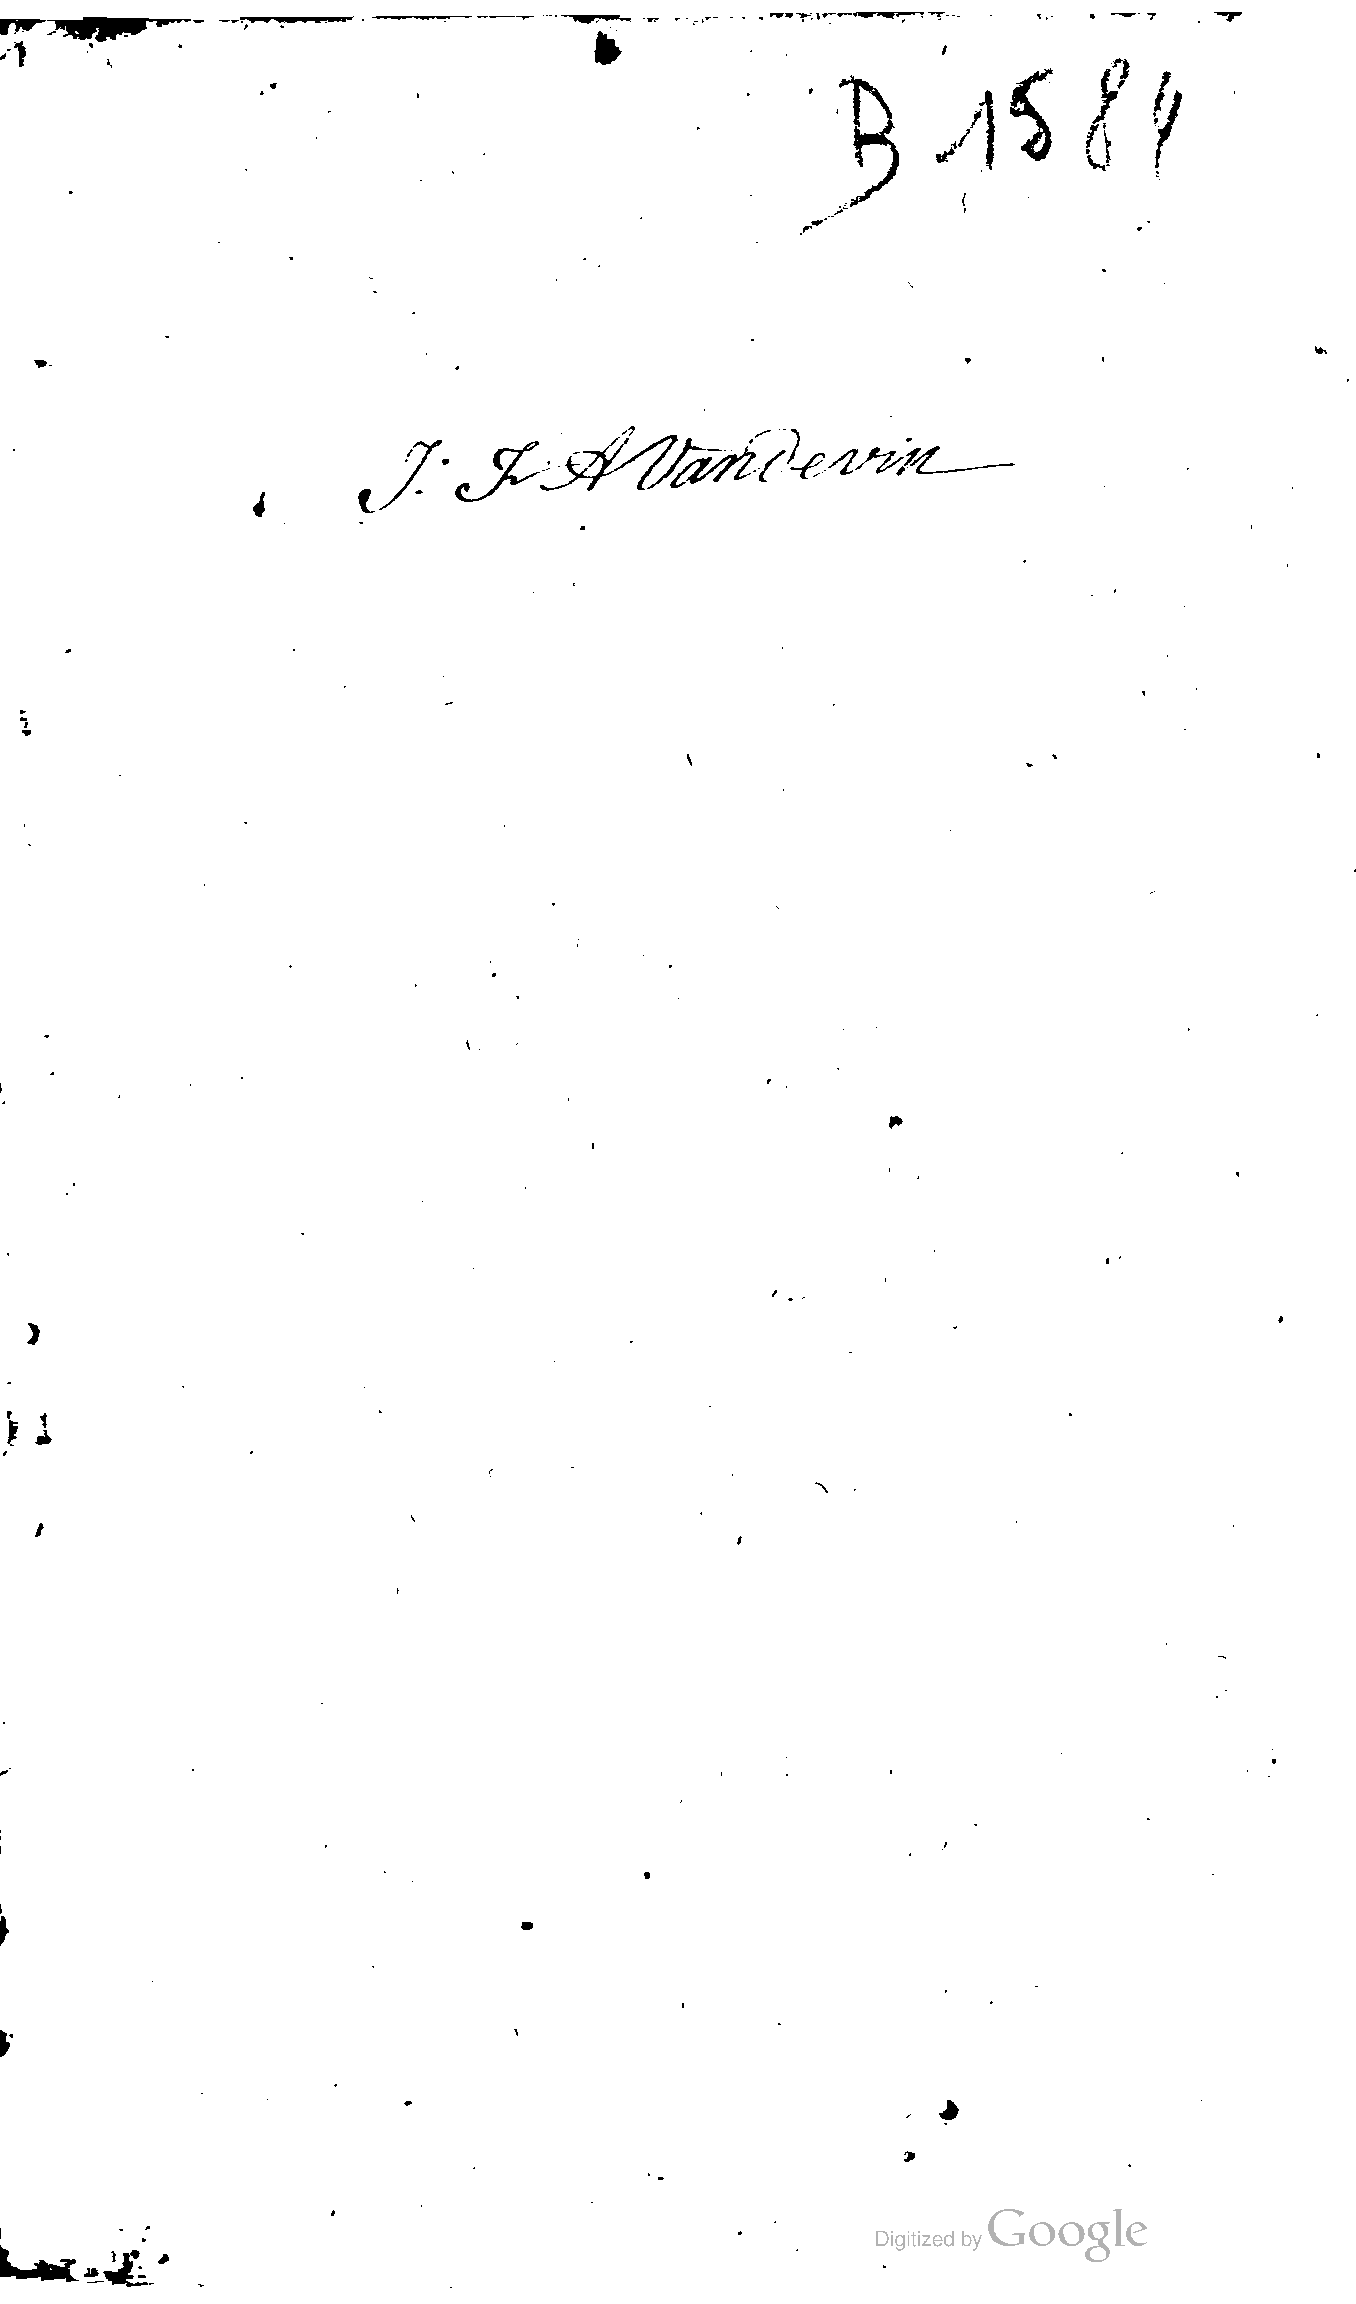 B 1584
J. Fr A Vandevin
Digitized by Google